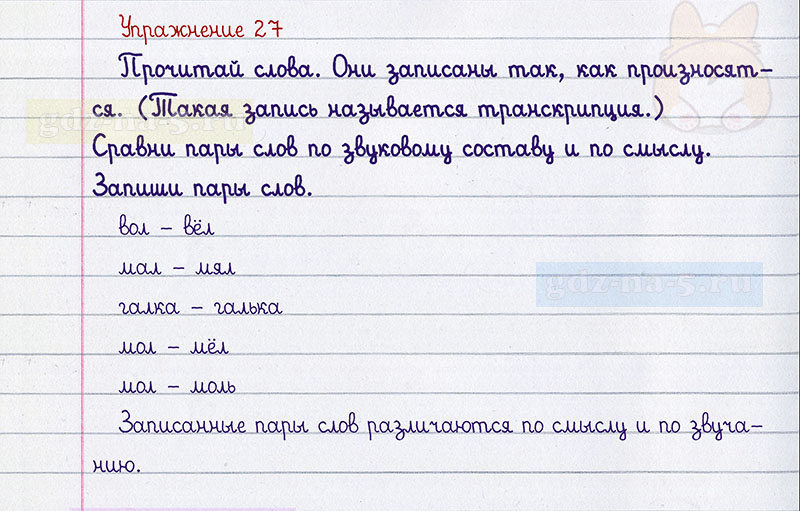 Упражнение 27
Прочитай слова. Они записаны так, как произносят-
ся. (Такая запись называется транскрипция.)
gdz-na-5.ru
Сравни пары слов по звуковому составу и по смыслу.
Запиши пары слов.
вол – вёл
мал – мял
gdz-na-5.ru
галка – галька
мол – мёл
мол – моль
Записанные пары слов различаются по смыслу и по звуча-
нию.